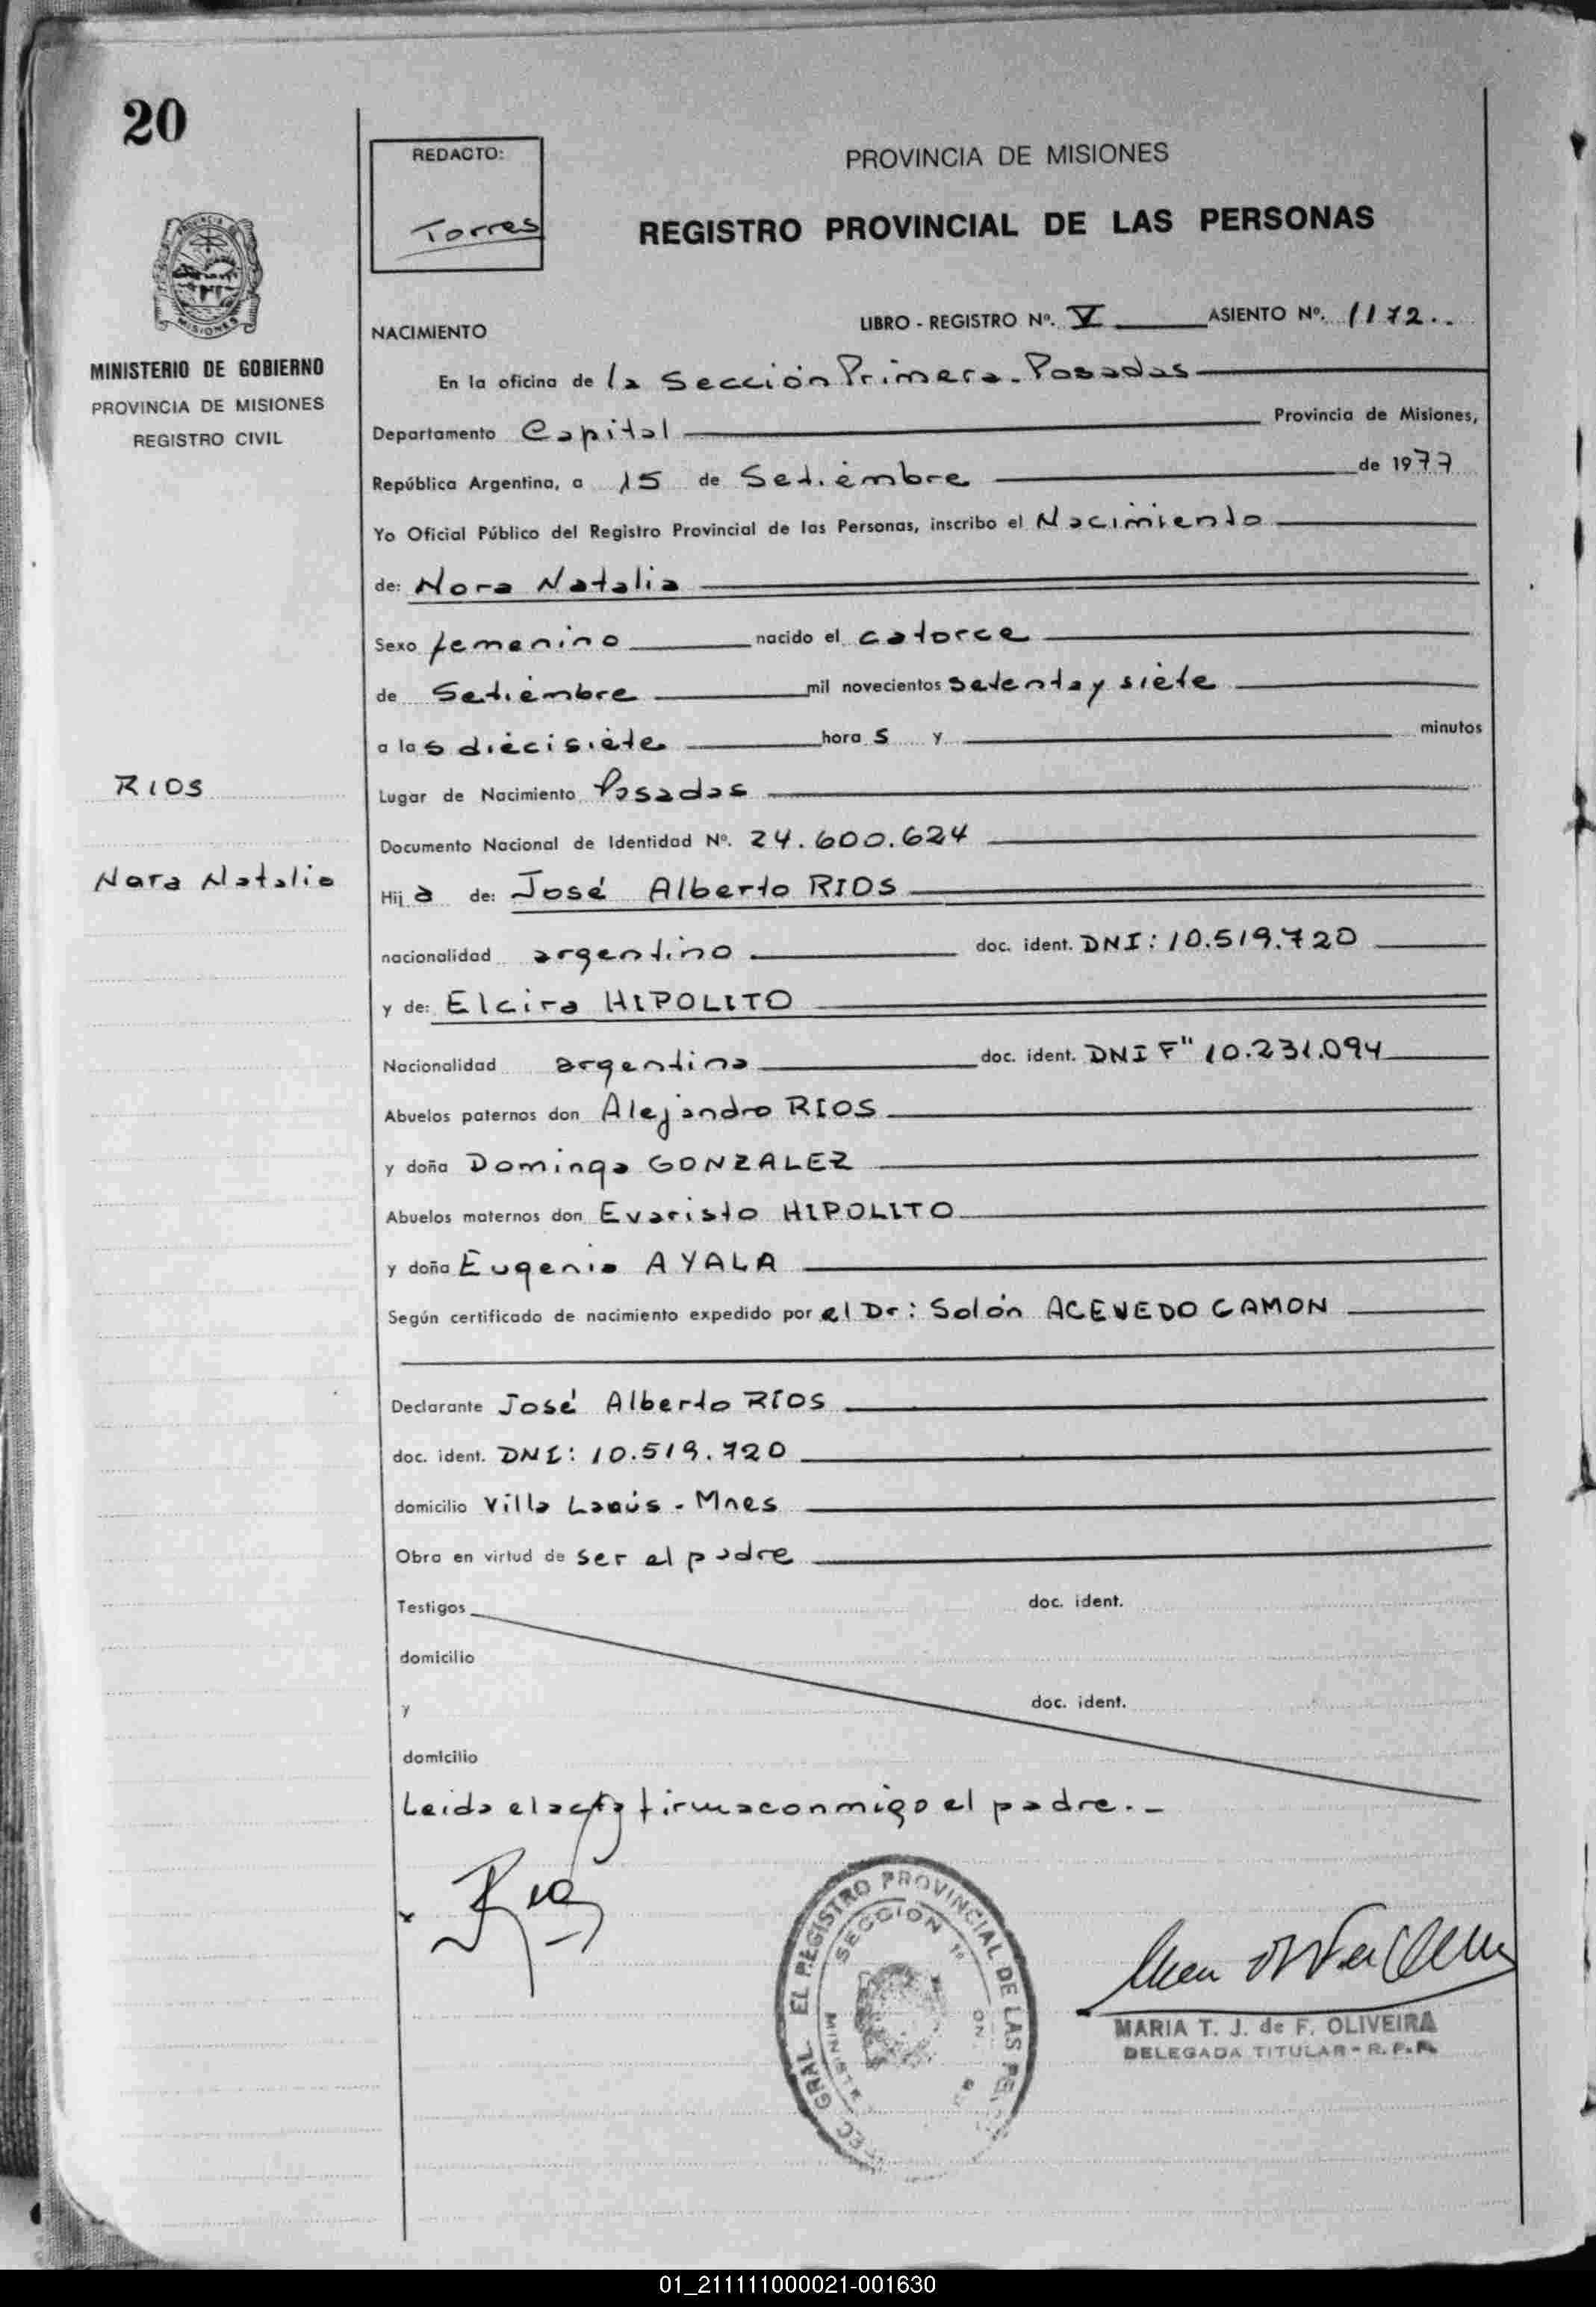 20
REDACTO:
Torres
PROVINCIA DE MISIONES
REGISTRO PROVINCIAL DE LAS PERSONAS
MISIONES
MINISTERIO DE GOBIERNO
PROVINCIA DE MISIONES
REGISTRO CIVIL
NACIMIENTO LIBRO - REGISTRO Nº. V ASIENTO Nº. 1172..
En la oficina de la Sección Primera. Posadas
Departamento Capital Provincia de Misiones,
República Argentina, a 15 de Setiembre de 1977
Yo Oficial Público del Registro Provincial de las Personas, inscribo el Nacimiento
de: Nora Natalia
Sexo femenino nacido el catorce
de Setiembre mil novecientos setenta y siete
a las diecisiete hora s y minutos
RIOS
Lugar de Nacimiento Posadas
Documento Nacional de Identidad Nº. 24.600.624
Nora Natalia
Hij a de: José Alberto RIOS
nacionalidad argentino doc. ident. DNI: 10.519.720
y de: Elcira HIPOLITO
Nacionalidad argentina doc. ident. DNI F" 10.231.094
Abuelos paternos don Alejandro RIOS
y doña Dominga GONZALEZ
Abuelos maternos don Evaristo HIPOLITO
y doña Eugenia AYALA
Según certificado de nacimiento expedido por el Dr: Solón ACEVEDO GAMON
Declarante José Alberto RIOS
doc. ident. DNI: 10.519.720
domicilio Villa Lanús - Mnes
Obra en virtud de ser el padre
Testigos doc. ident.
domicilio
y doc. ident.
domicilio
Leida el acta firma conmigo el padre.-
GRAL. EL REGISTRO PROVINCIAL DE LAS PE
SECCION 1º
MARIA T. J. de F. OLIVEIRA
DELEGADA TITULAR - R. P. P.
01_211111000021-001630